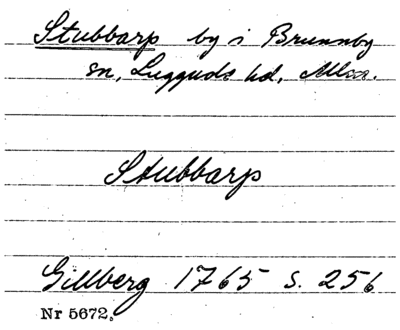 Stubbarp by i Brunnby
sn, Luggude hd, Mlm.
Stubbarp
Gillberg 1765 s. 256
Nr 5672.